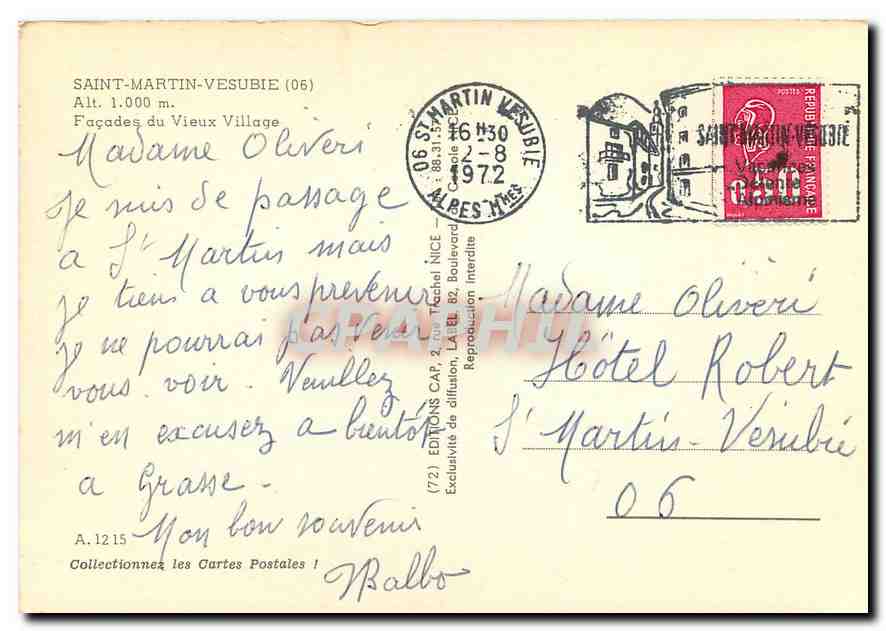 SAINT-MARTIN-VESUBIE (06)
Alt. 1.000 m.
Façades du Vieux Village
Madame Oliveri
Je suis de passage
a St Martin mais
je tiens a vous prevenir
je ne pourrai pas venir
vous voir. Veuillez
m'en excusez a bientôt
a Grasse -
Mon bon souvenir
Balbo
A.1215
Collectionnez les Cartes Postales !
(72) EDITIONS CAP, 2, rue Trachel NICE - 88.31.57
Exclusivité de diffusion, LABEL, 82, Boulevard
Reproduction Interdite
06 ST MARTIN VESUBIE
16 H 30
2-8
1972
ALPES Mmes
SAINT-MARTIN-VESUBIE
Vacances
Détente
Alpinisme
POSTES
REPUBLIQUE FRANCAISE
0,50
Madame Oliveri
Hôtel Robert
St Martin-Vesubie
06